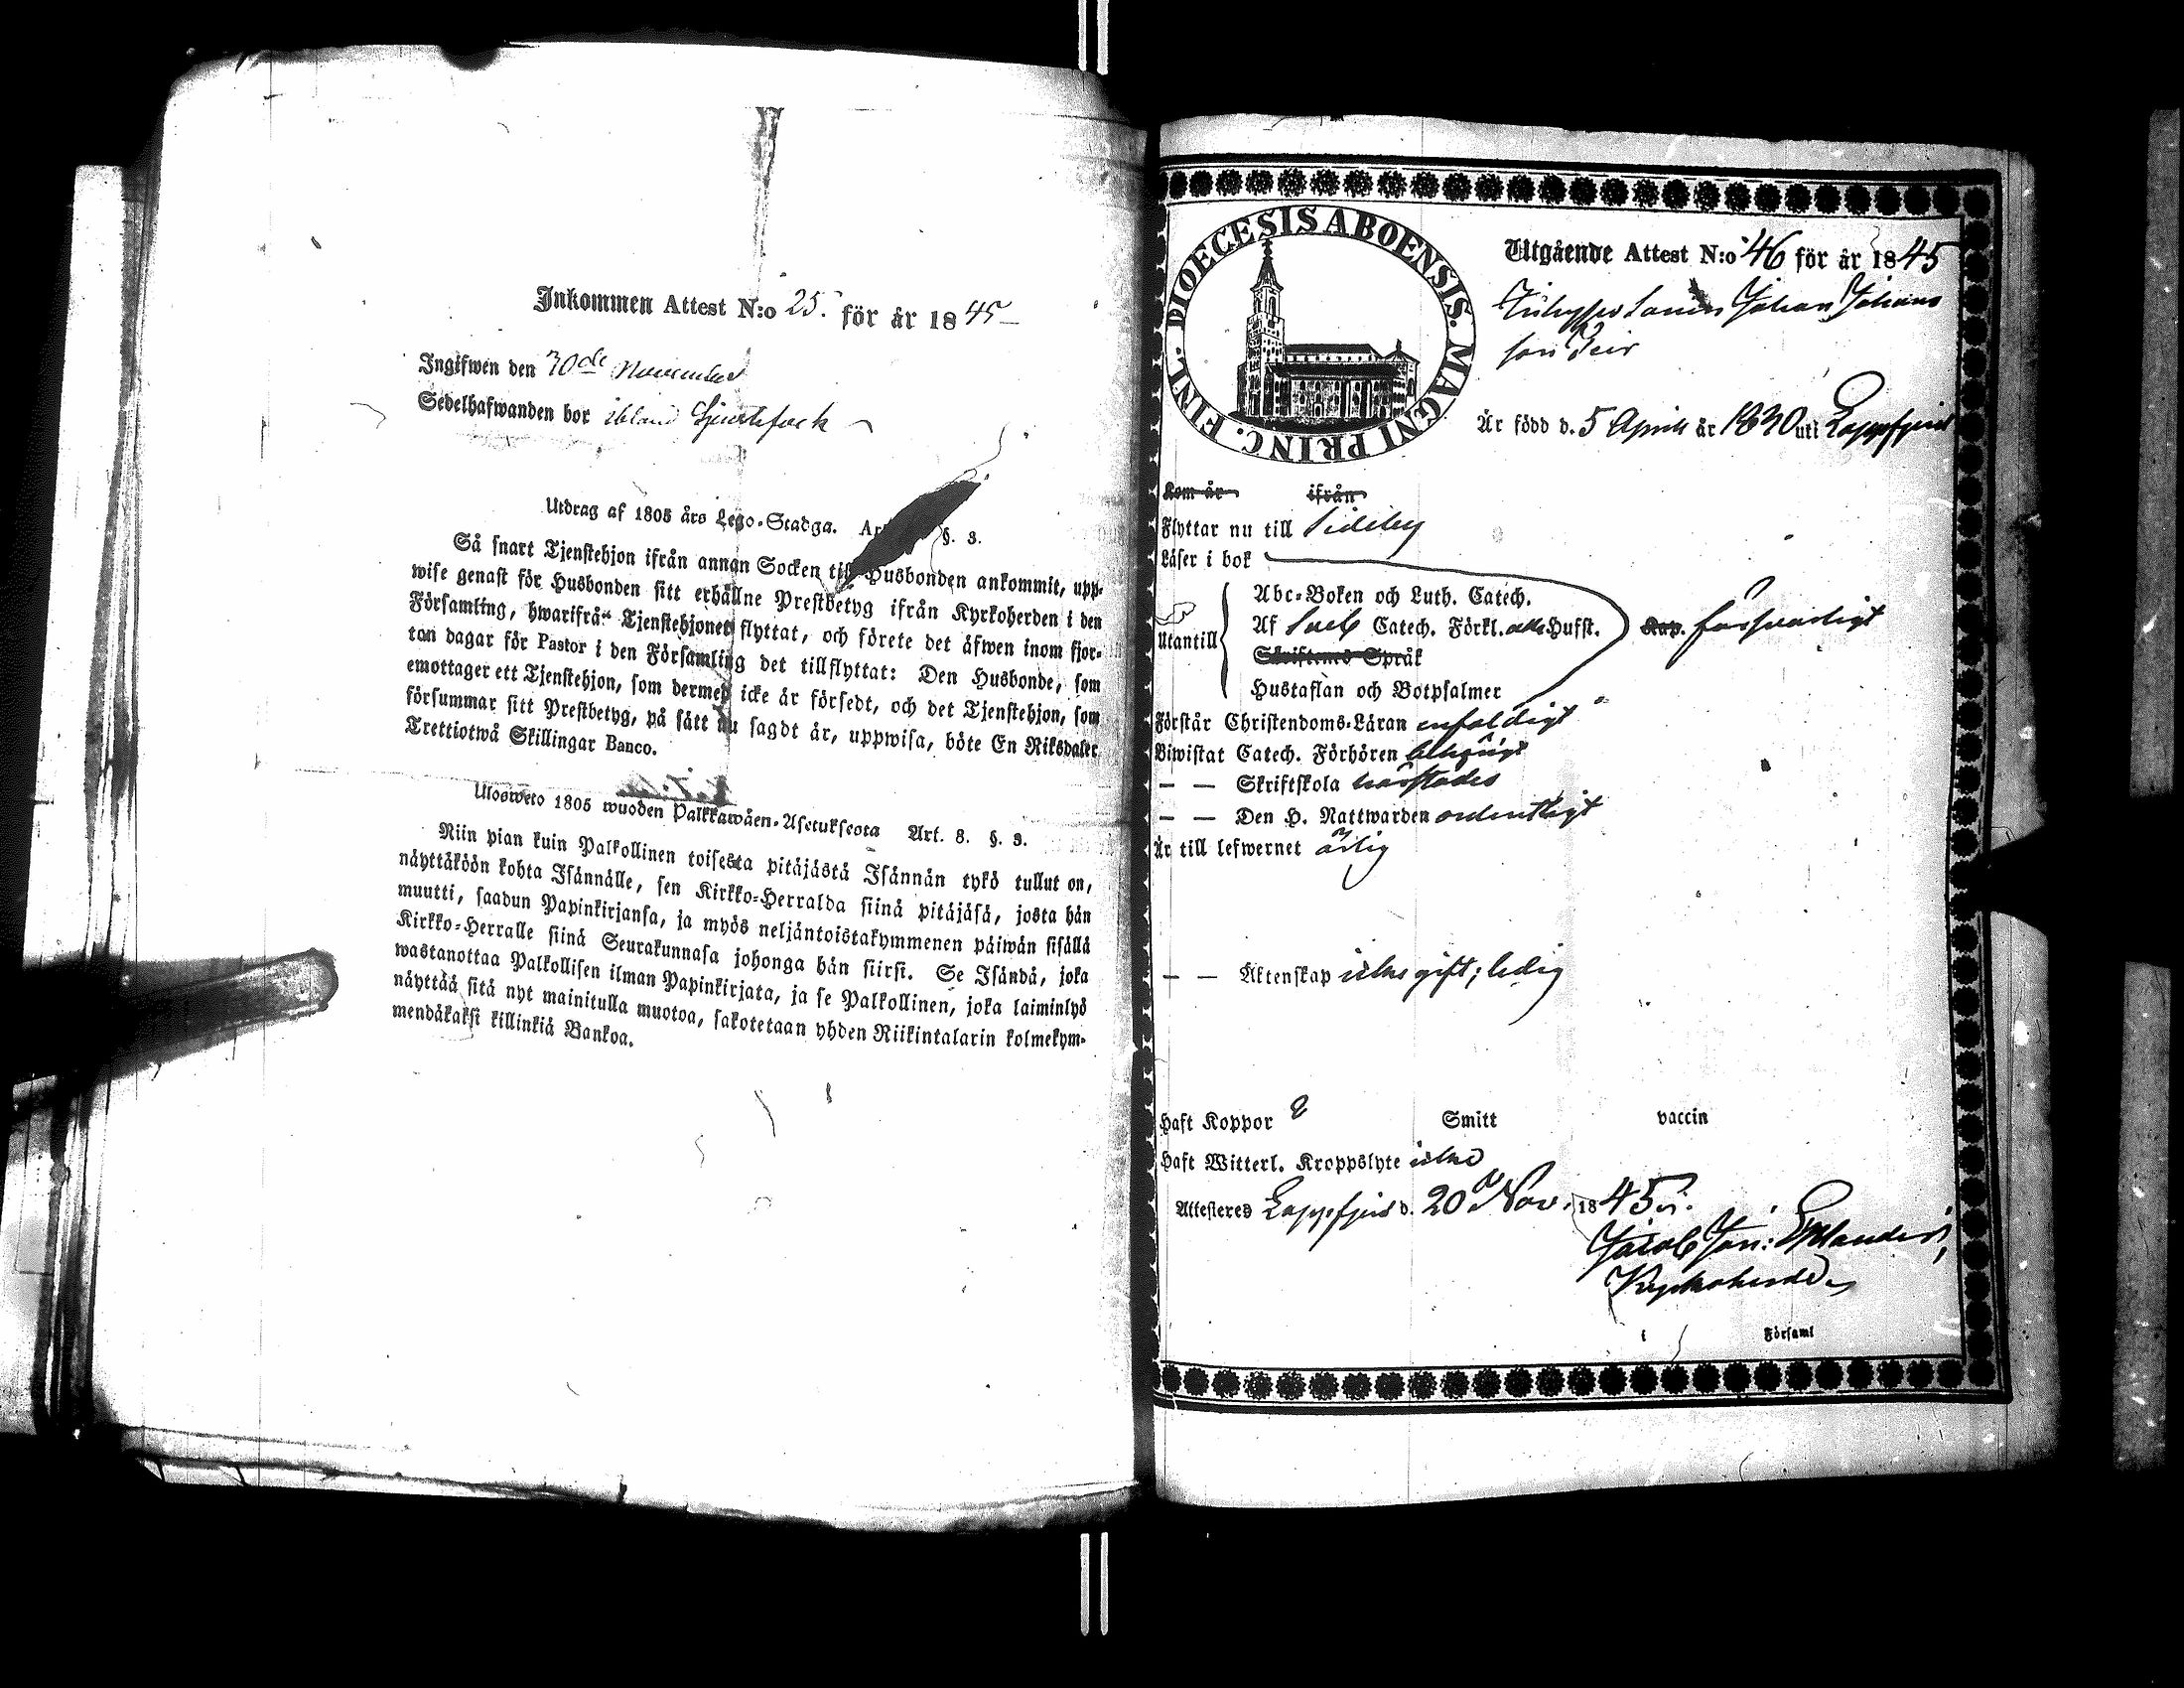 Inkommen Attest N:o 25. för år 1845
Ingifwen den 30de November
Sedelhafwanden bor ibland
Utdrag af 1805 års Lego-Stadga. §. 3.
Så snart Tjenstehjon ifrån annan Socken till Husbonden ankommit, upp-
wise genast för Husbonden sitt erhållne Prestbetyg ifrån Kyrkoherden i den
Församling, hwarifrån Tjenstehjonet flyttat, och förete det äfwen inom fjor-
ton dagar för Pastor i den Församling det tillflyttat: Den Husbonde, som
emottager ett Tjenstehjon, som dermed icke är försedt, och det Tjenstehjon, som
försummar sitt Prestbetyg, på sätt nu sagdt är, uppwisa, böte En Riksdaler
Trettiotwå Skillingar Banco.
Ulosweto 1805 wuoden Palkkawäen-Asetuksesta Art. 8. §. 3.
Niin pian kuin Palkollinen toisesta pitäjästä Isännän tykö tullut on,
näyttäköön kohta Isännälle, sen Kirkko-Herralda siinä pitäjäsä, josta hän
muutti, saadun Papinkirjansa, ja myös neljäntoistakymmenen päiwän sisällä
Kirkko-Herralle siinä Seurakunnasa johonga hän siirsi. Se Isändä, joka
wastanottaa Palkollisen ilman Papinkirjata, ja se Palkollinen, joka laiminlyö
näyttää sitä nyt mainitulla muotoa, sakotetaan yhden Riikintalarin kolmekym-
mendäkaksi killinkiä Bankoa.
DIOECESIS ABOENSIS. MAGNI PRINC. FINL.
Utgående Attest N:o 46 för år 1845
Johan Johans
son
Är född d. 5 April år 1830 uti Lappfjerd
Kom år ifrån
Flyttar nu till Sideby
Läser i bok
Utantill
Abc-Boken och Luth. Catech.
Af Sveb Catech. Förkl. Husst.
Skriftenes Språk
Hustaflan och Botpsalmer
Kap. försvarligt
Förstår Christendoms-Läran enfaldigt
Biwistat Catech. Förhören behörigt
— — Skriftskola härstädes
— — Den H. Nattwarden ordentligt
Är till lefwernet ärlig
— — Äktenskap icke gift; ledig
Haft Koppor Smitt vaccin
Haft Witterl. Kroppslyte icke
Attesteres Lappfjerd d. 20 Nov. 1845.
Jacob Joh:
Kyrkoherde
i Församl